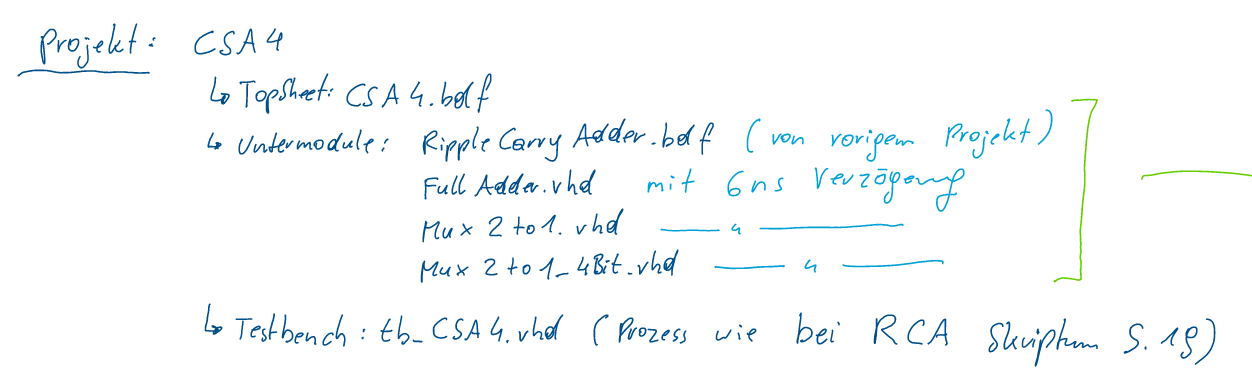 Projekt: CSA4
↳ TopSheet: CSA4.bdf
↳ Untermodule: RippleCarryAdder.bdf (von vorigem Projekt)
FullAdder.vhd mit 6ns Verzögerung
Mux2to1.vhd —— " ——
Mux2to1_4Bit.vhd —— " ——
↳ Testbench: tb_CSA4.vhd (Prozess wie bei RCA Skriptum S. 19)